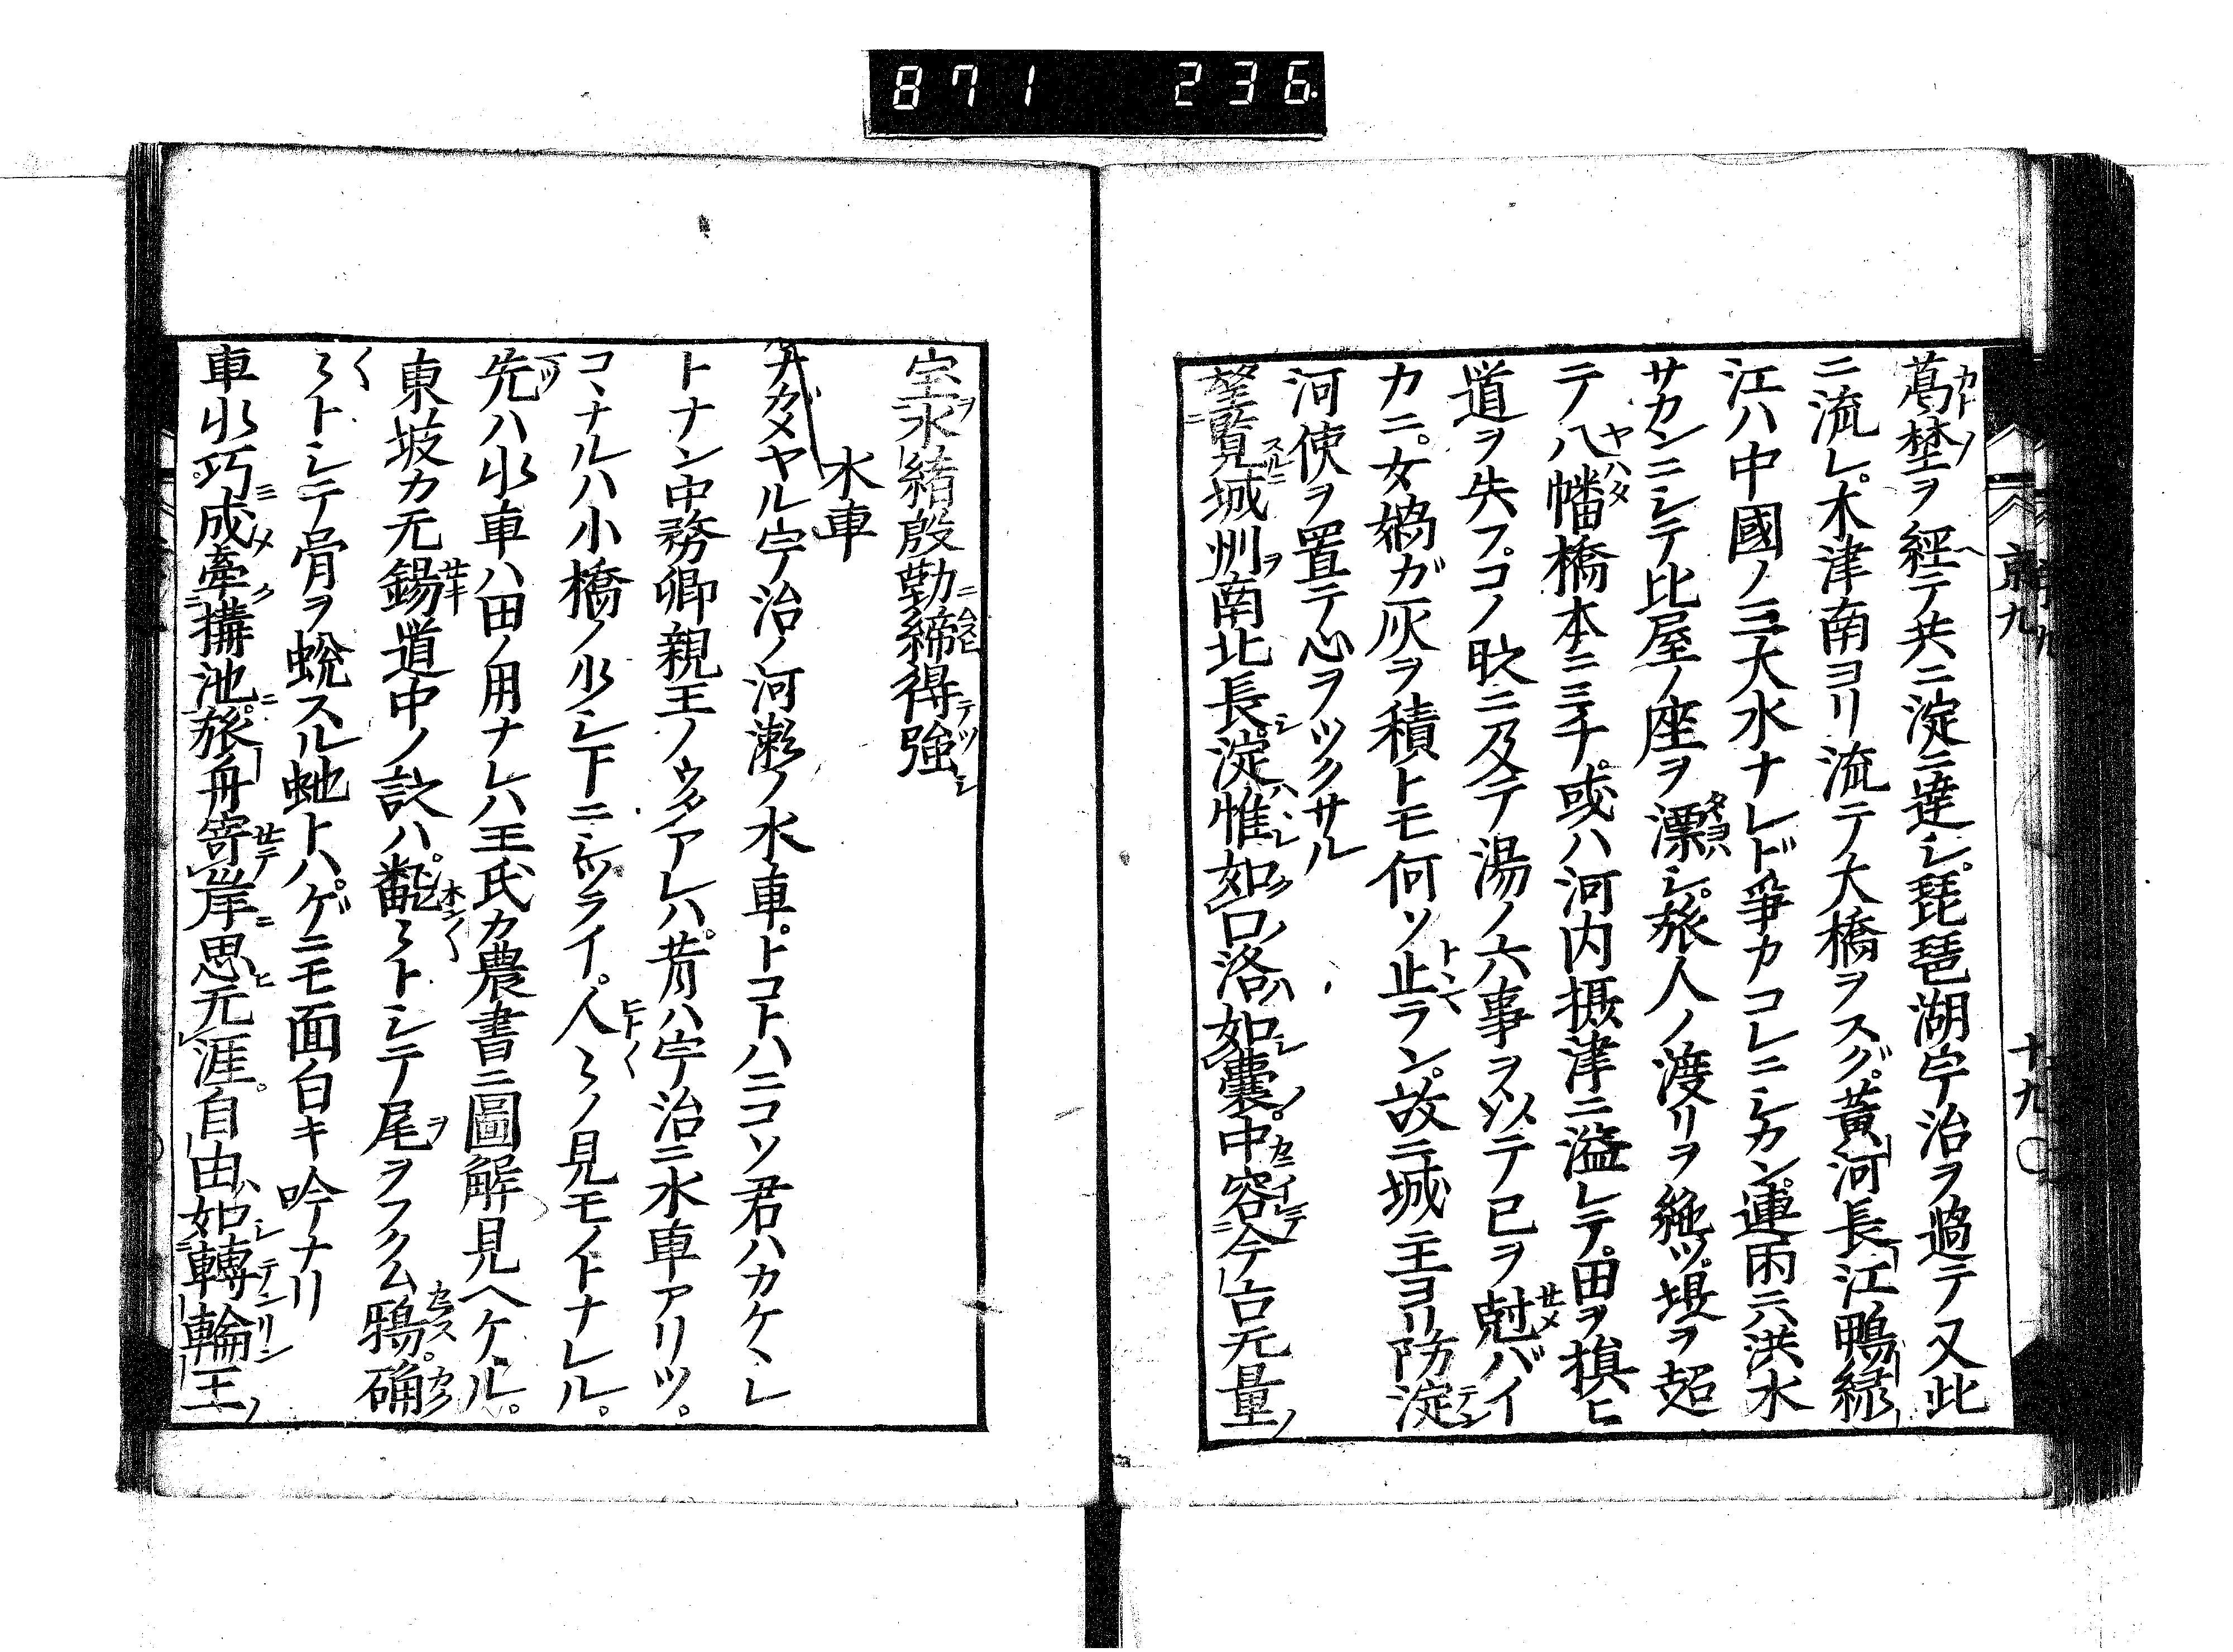 871 236
葛埜ヲ經テ共ニ淀ニ達シ琵琶湖宇治ヲ過テ又此
ニ流レ木津南ヨリ流テ大橋ヲスグ黄河長江鴨緑
江ハ中國ノ三大水ナレド爭カコレニシカン連雨ニ六洪水
サカンニシテ比屋ノ座ヲ漂シ旅人ノ渡リヲ絶ツ堤ヲ超
テ八幡橋本ニミチ或ハ河内摂津ニ溢レテ田ヲ損ヒ
道ヲ失フコノ時ニ及テ湯ノ六事ヲ以テ己ヲ尅バイ
カニ女媧ガ灰ヲ積トモ何ソ止ラン故ニ城主ヨリ防淀
河使ヲ置テ心ヲツクサル
登覧城州南北長淀惟如口洛如嚢中容今古无量
宝水結殷勤締得強
水車
ナガメヤル宇治ノ河瀬ノ水車トコトハニコソ君ハカケヽレ
トナン中務卿親王ノウタアレハ昔ハ宇治ニ水車アリツ
コヽナルハ小橋ノ少シ下ニシツライ人〻ノ見モノトナレル
先ハ水車ハ田ノ用ナレハ王氏カ農書ニ圖解見ヘケル
東坡カ无錫道中ノ詩ハ飜〻トシテ尾ヲフクム鴉确
〻トシテ骨ヲ蛻スル虵トハゲニモ面白キ吟ナリ
車水巧成牽搆池旅舟寄岸思无涯自由如轉輪王
京九
十九